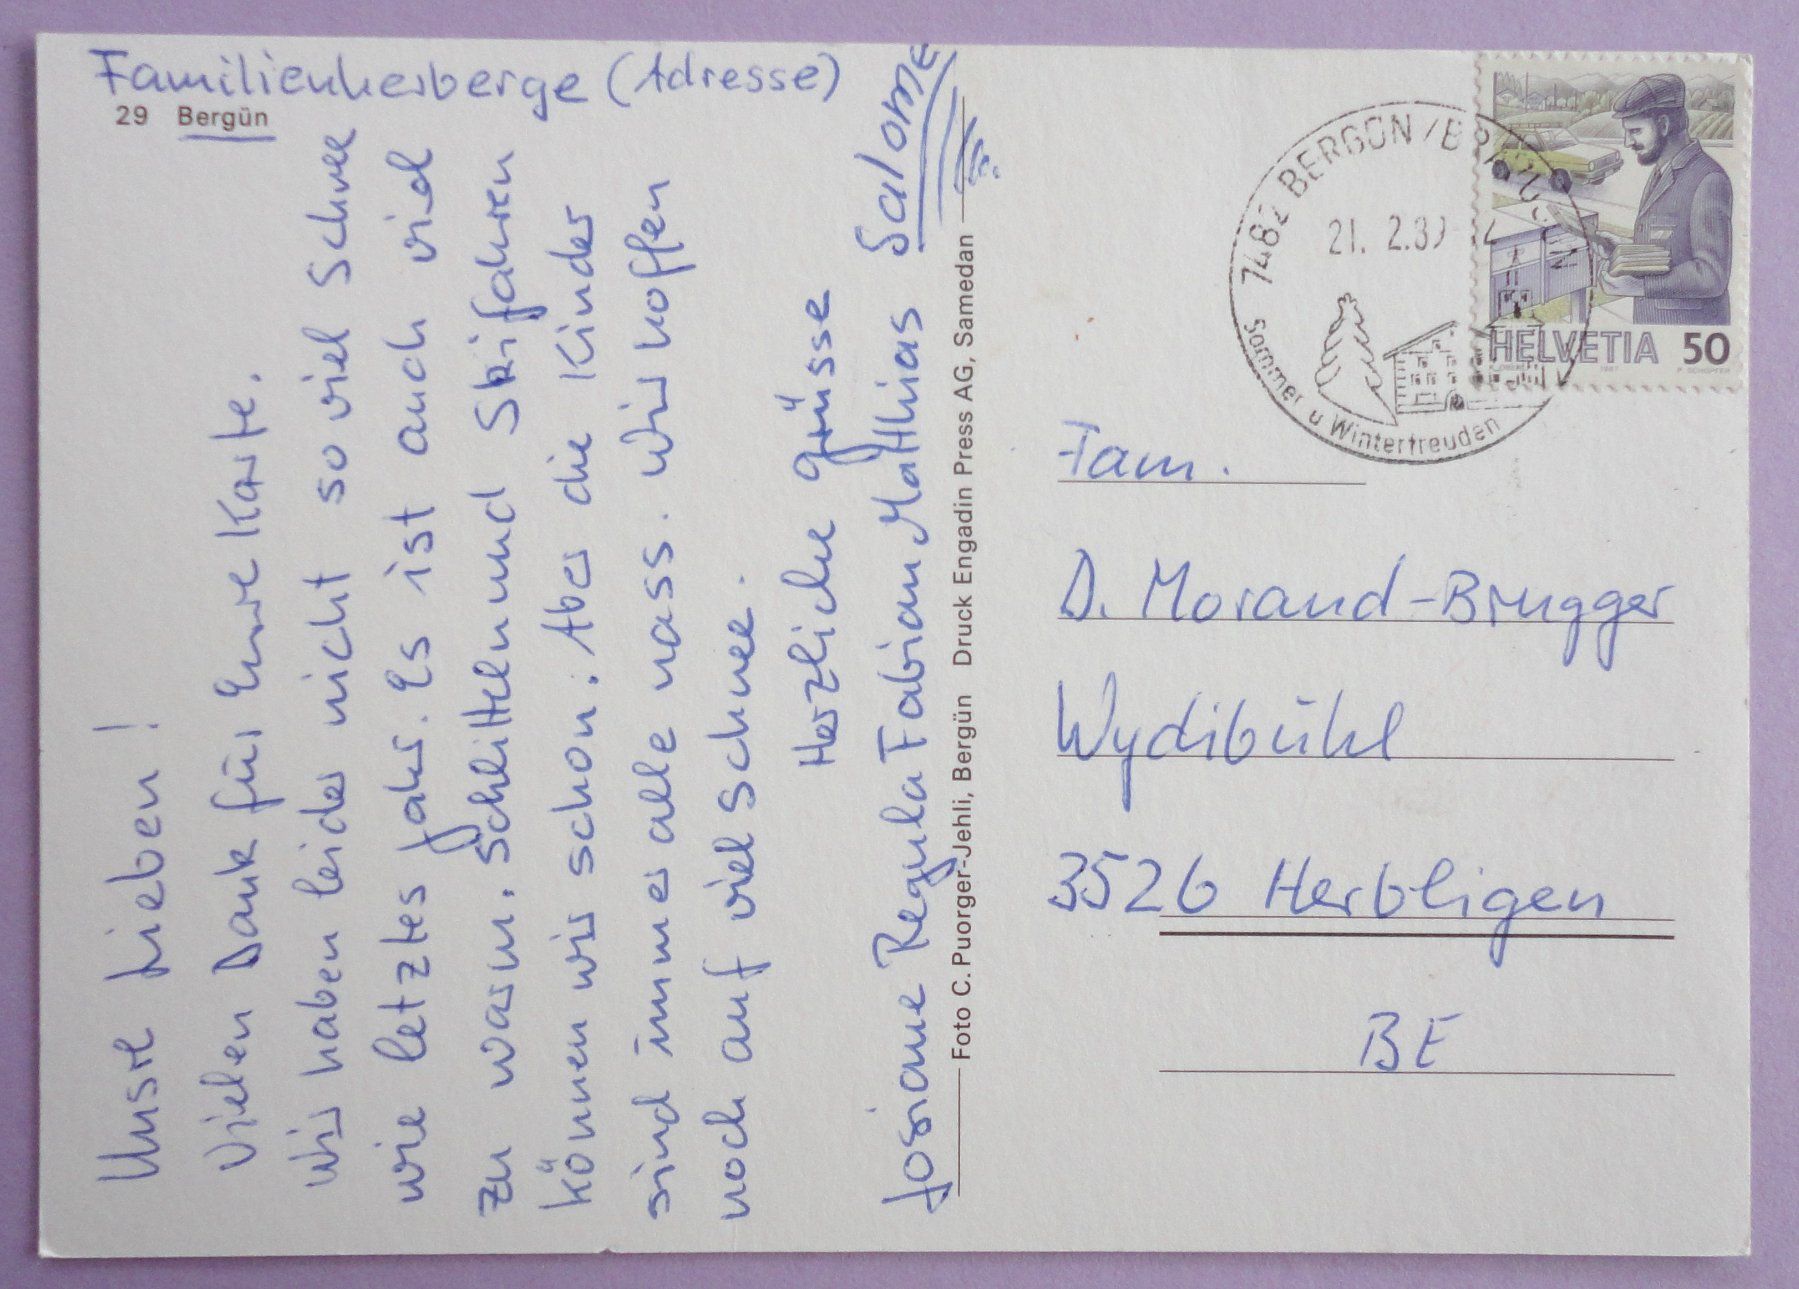 Familienherberge (Adresse)
29 Bergün
Unsre Lieben!
Vielen Dank für Eure Karte.
Wir haben leider nicht so viel Schnee
wie letztes Jahr. Es ist auch viel
zu warm. Schlitteln und Skifahren
können wir schon. Aber die Kinder
sind immer alle nass. Wir hoffen
noch auf viel Schnee.
Herzliche Grüsse
Josiane Regula Fabian Mathias Salome
Foto C. Puorger-Jehli, Bergün Druck Engadin Press AG, Samedan
7482 BERGÜN/
21. 2.89
Sommer u Winterfreuden
HELVETIA 50
1987 P. SCHOPFER
Fam.
D. Morand-Brugger
Wydibühl
3526 Herbligen
BE